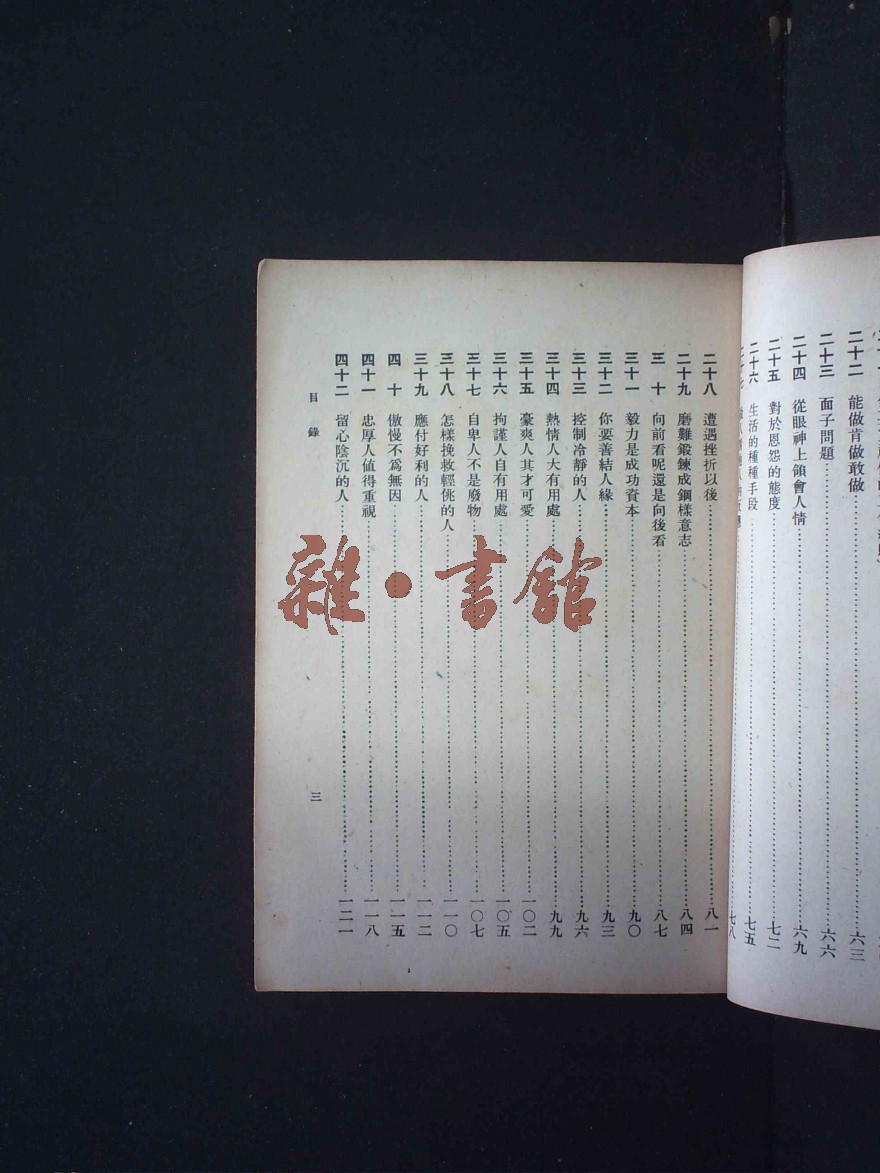 二十二 能做肯做敢做 六三
二十三 面子問題 六六
二十四 從眼神上領會人情 六九
二十五 對於恩怨的態度 七二
二十六 生活的種種手段 七五
二十七 七八
二十八 遭遇挫折以後 八一
二十九 磨難鍛鍊成鋼樣意志 八四
三十 向前看呢還是向後看 八七
三十一 毅力是成功資本 九〇
三十二 你要善結人緣 九三
三十三 控制冷靜的人 九六
三十四 熱情人大有用處 九九
三十五 豪爽人其才可愛 一〇二
三十六 拘謹人自有用處 一〇五
三十七 自卑人不是廢物 一〇七
三十八 怎樣挽救輕佻的人 一一〇
三十九 應付好利的人 一一二
四十 傲慢不爲無因 一一五
四十一 忠厚人値得重視 一一八
四十二 留心陰沉的人 一二一
目錄
三
雜·書館